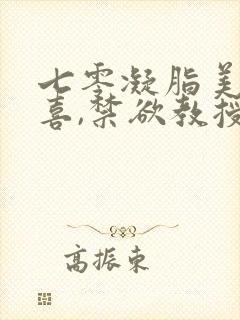 七零凝脂美
喜,禁欲教授
高振东